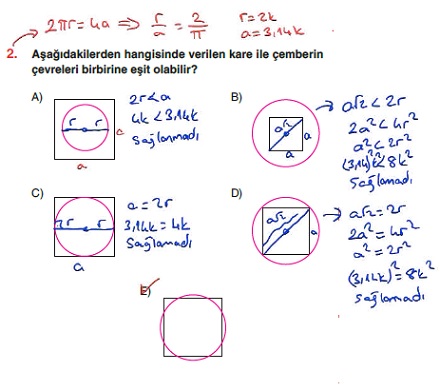 2πr = 4a ⇒ r/a = 2/π r = 2k
a = 3,14k
2. Aşağıdakilerden hangisinde verilen kare ile çemberin
çevreleri birbirine eşit olabilir?
A)
r r
a
a
2r < a
4k < 3,14k
Sağlanmadı
B)
a√2
a
a
a√2 < 2r
2a² < 4r²
a² < 2r²
(3,14)²k² < 8k²
Sağlamadı
C)
r r
a
a = 2r
3,14k = 4k
Sağlamadı
D)
a√2
a
a√2 = 2r
2a² = 4r²
a² = 2r²
(3,14k)² = 8k²
Sağlamadı
E)